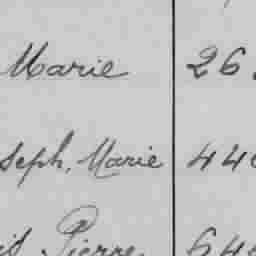 Marie 26
seph, Marie 440
is Pierre 645